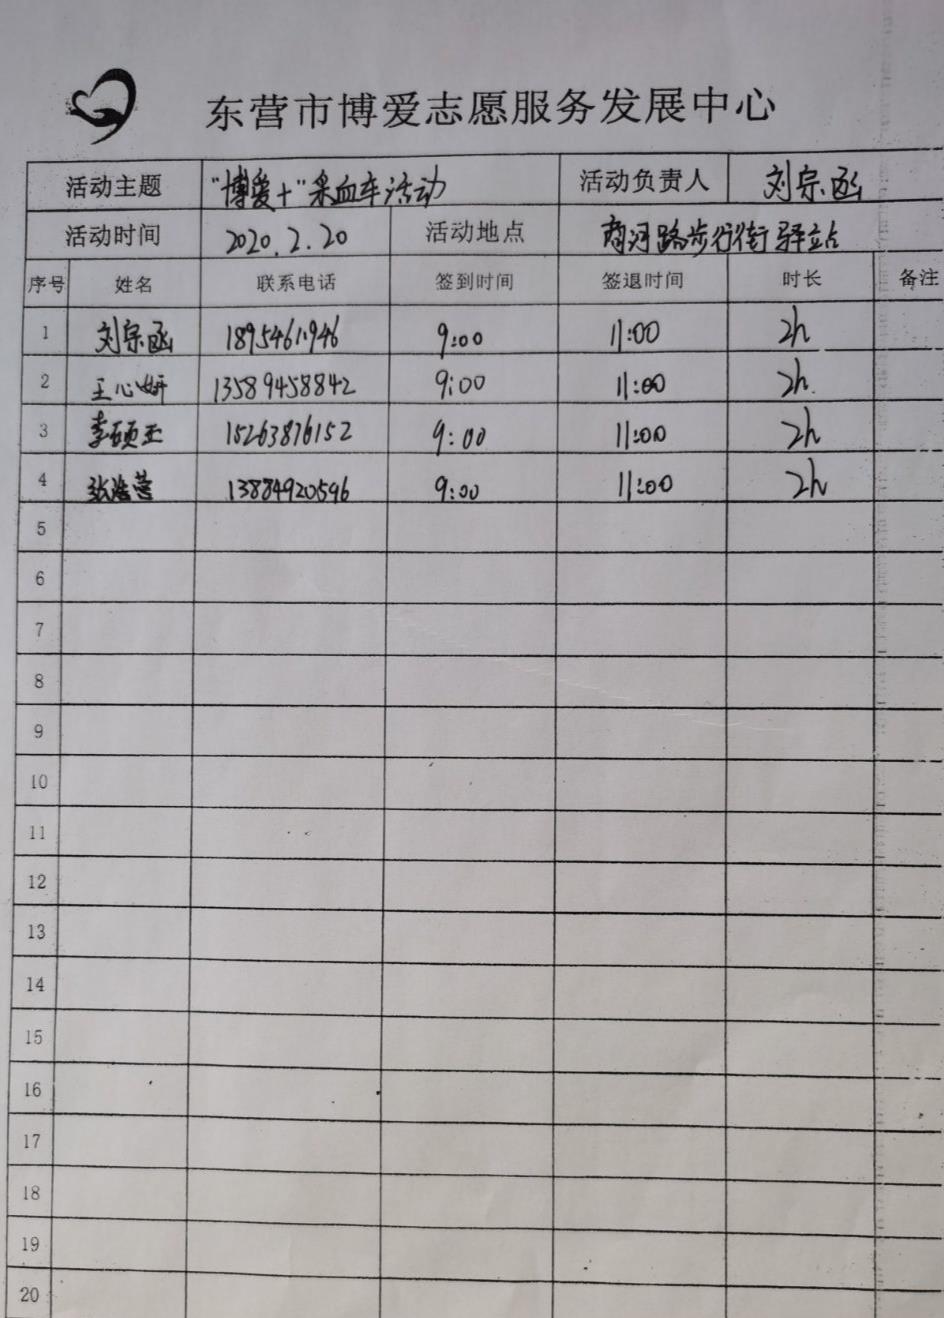 东营市博爱志愿服务发展中心
活动主题 “博爱+”采血车活动 活动负责人 刘宗函
活动时间 2020.2.20 活动地点 商河路步行街驿站
序号 姓名 联系电话 签到时间 签退时间 时长 备注
1 刘宗函 18954611946 9:00 11:00 2h
2 王心妍 13589458842 9:00 11:00 2h.
3 李硕玉 15263876152 9:00 11:00 2h
4 13884920596 9:00 11:00 2h
5
6
7
8
9
10
11
12
13
14
15
16
17
18
19
20